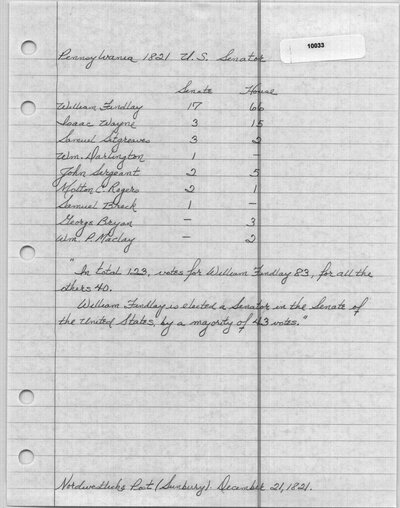 Pennsylvania 1821 U.S. Senator
10033
Senate House
William Findlay 17 66
Isaac Wayne 3 15
Samuel Sitgreaves 3 2
Wm. Darlington 1 –
John Sergeant 2 5
Molton C. Rogers 2 1
Samuel Breck 1 –
George Bryan – 3
Wm P. Maclay – 2
"In total 123, votes for William Findlay 83, for all the
others 40.
William Findlay is elected a Senator in the Senate of
the United States, by a majority of 43 votes."
Nordwestliche Post (Sunbury). December 21, 1821.